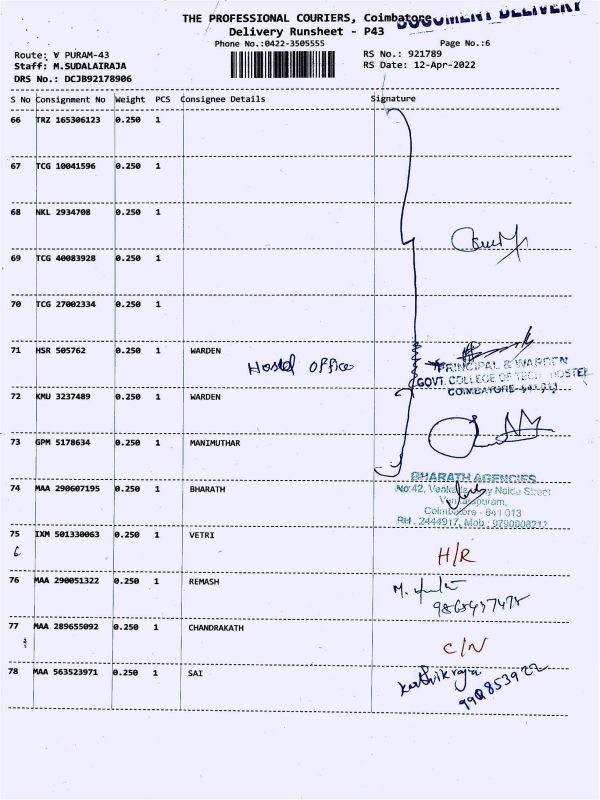 DOCUMENT DELIVERY
THE PROFESSIONAL COURIERS, Coimbatore
Delivery Runsheet - P43
Phone No.:0422-3505555
Page No.:6
Route: V PURAM-43
RS No.: 921789
Staff: M.SUDALAIRAJA
RS Date: 12-Apr-2022
DRS No.: DCJB92178906
S No Consignment No Weight PCS Consignee Details Signature
66 TRZ 165306123 0.250 1
67 TCG 10041596 0.250 1
68 NKL 2934708 0.250 1
69 TCG 40083928 0.250 1
70 TCG 27002334 0.250 1
71 HSR 505762 0.250 1 WARDEN
Hostel Office
PRINCIPAL & WARDEN
GOVT. COLLEGE OF TECH HOSTEL
COIMBATORE-641 013
72 KMU 3237489 0.250 1 WARDEN
73 GPM 5178634 0.250 1 MANIMUTHAR
BHARATH AGENCIES
74 MAA 290607195 0.250 1 BHARATH
No:42, Naidu Street
Coimbatore - 641 013
PH : 2444917, Mob : 9790808212
75 IXM 501330063 0.250 1 VETRI
6
H/R
76 MAA 290051322 0.250 1 REMASH
M.
77 MAA 289655092 0.250 1 CHANDRAKATH
C/N
78 MAA 563523971 0.250 1 SAI
Karthik raja